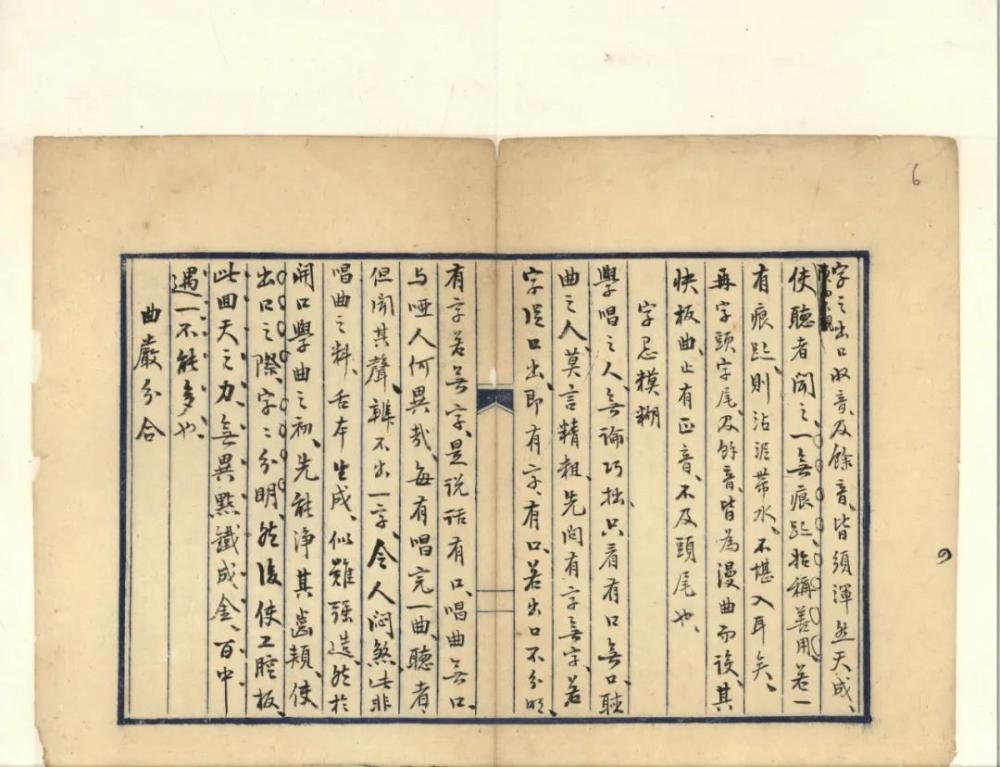 6
字之出口收音、及餘音、皆須渾然天成、
使聽者聞之一無痕跡、始稱善用、若一
有痕跡、則沾泥帶水、不堪入耳矣、
再字頭字尾、及餘音、皆為漫曲而設、其
快板曲、止有正音、不及頭尾也、
字忌糢糊
學唱之人、無論巧拙、只看有口無口、聽
曲之人、莫言精粗、先問有字無字、若
字從口出、即有字、有口、若出口不分明、
有字若無字、是说话有口、唱曲無口、
与啞人何異哉、每有唱完一曲、聽者、
但聞其聲、辨不出一字、令人悶煞、此非
唱曲之料、舌本生成、似難强造、然於
開口學曲之初、先能淨其齒頰、使
出口之際、字〻分明、然後使工腔板、
此回天之力、無異點鐵成金、百中
遇一、不能多也、
曲嚴分合